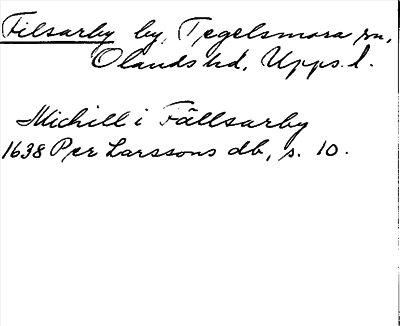 Filsarby by, Tegelsmora sn,
Olands hd, Upps. l.
Michill i Fällsarby
1638 Per Larssons db, s. 10.